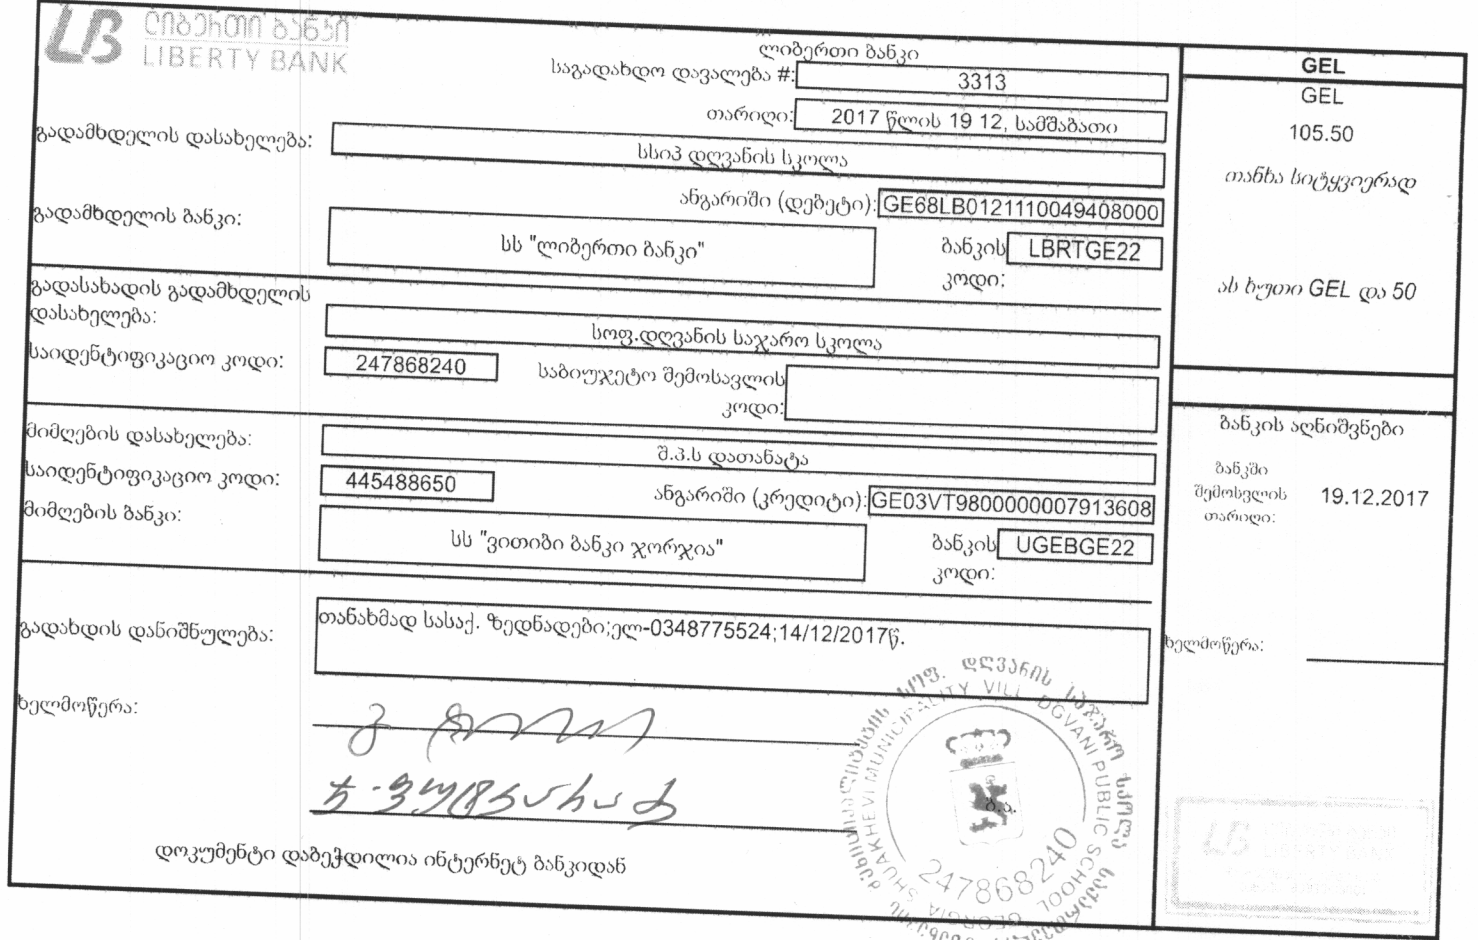 ლიბერთი ბანკი
LIBERTY BANK
ლიბერთი ბანკი
საგადახდო დავალება #: 3313
თარიღი: 2017 წლის 19 12, სამშაბათი
გადამხდელის დასახელება: სსიპ დღვანის სკოლა
ანგარიში (დებეტი): GE68LB0121110049408000
გადამხდელის ბანკი: სს "ლიბერთი ბანკი"
ბანკის კოდი: LBRTGE22
გადასახადის გადამხდელის
დასახელება: სოფ.დღვანის საჯარო სკოლა
საიდენტიფიკაციო კოდი: 247868240
საბიუჯეტო შემოსავლის
კოდი:
მიმღების დასახელება: შ.პ.ს დათანატა
საიდენტიფიკაციო კოდი: 445488650
ანგარიში (კრედიტი): GE03VT9800000007913608
მიმღების ბანკი: სს "ვითიბი ბანკი ჯორჯია"
ბანკის კოდი: UGEBGE22
გადახდის დანიშნულება: თანახმად სასაქ. ზედნადები;ელ-0348775524;14/12/2017წ.
ხელმოწერა:
დოკუმენტი დაბეჭდილია ინტერნეტ ბანკიდან
GEL
GEL
105.50
თანხა სიტყვიერად
ას ხუთი GEL და 50
ბანკის აღნიშვნები
ბანკში
შემოსვლის
თარიღი: 19.12.2017
ხელმოწერა:
სოფ. დღვანის საჯარო სკოლა
SHUAKHEVI MUNICIPALITY VILL. DGVANI PUBLIC SCHOOL GEORGIA
ბ.ა.
247868240
LIBERTY BANK